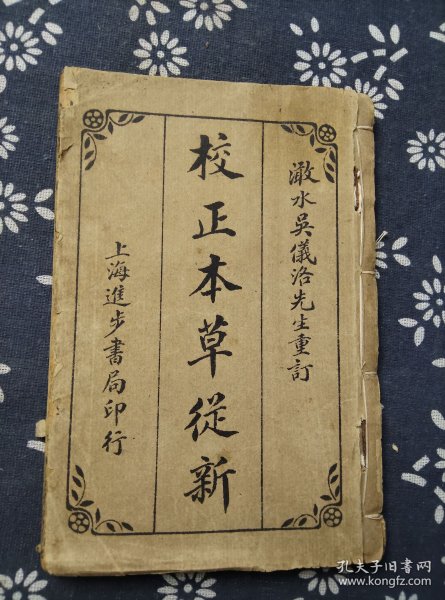 澉水吳儀洛先生重訂
校正本草從新
上海進步書局印行
孔夫子旧书网
www.kongfz.com